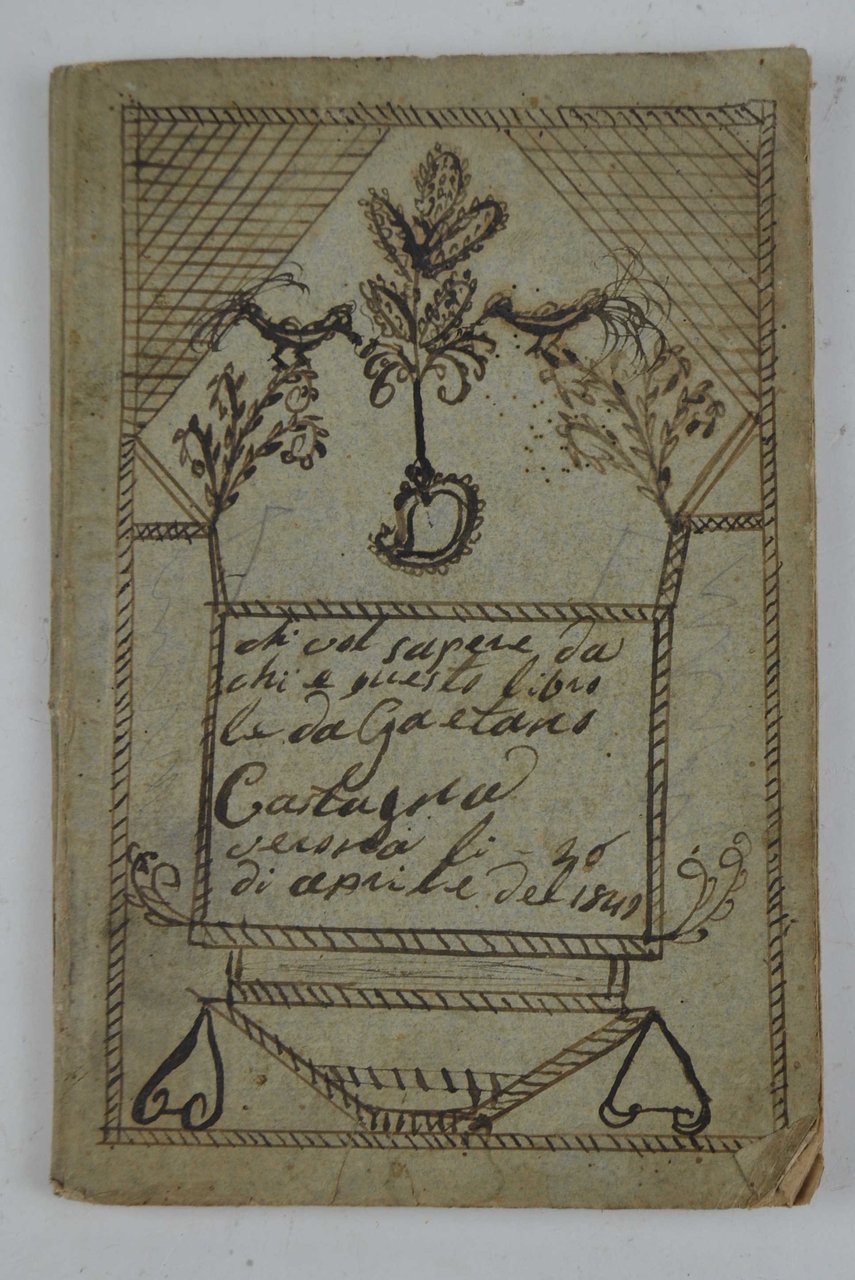 chi vol sapere da
chi e questo libro
le da Gaetano
Castagna
verona li - 30
di aprile del 1849